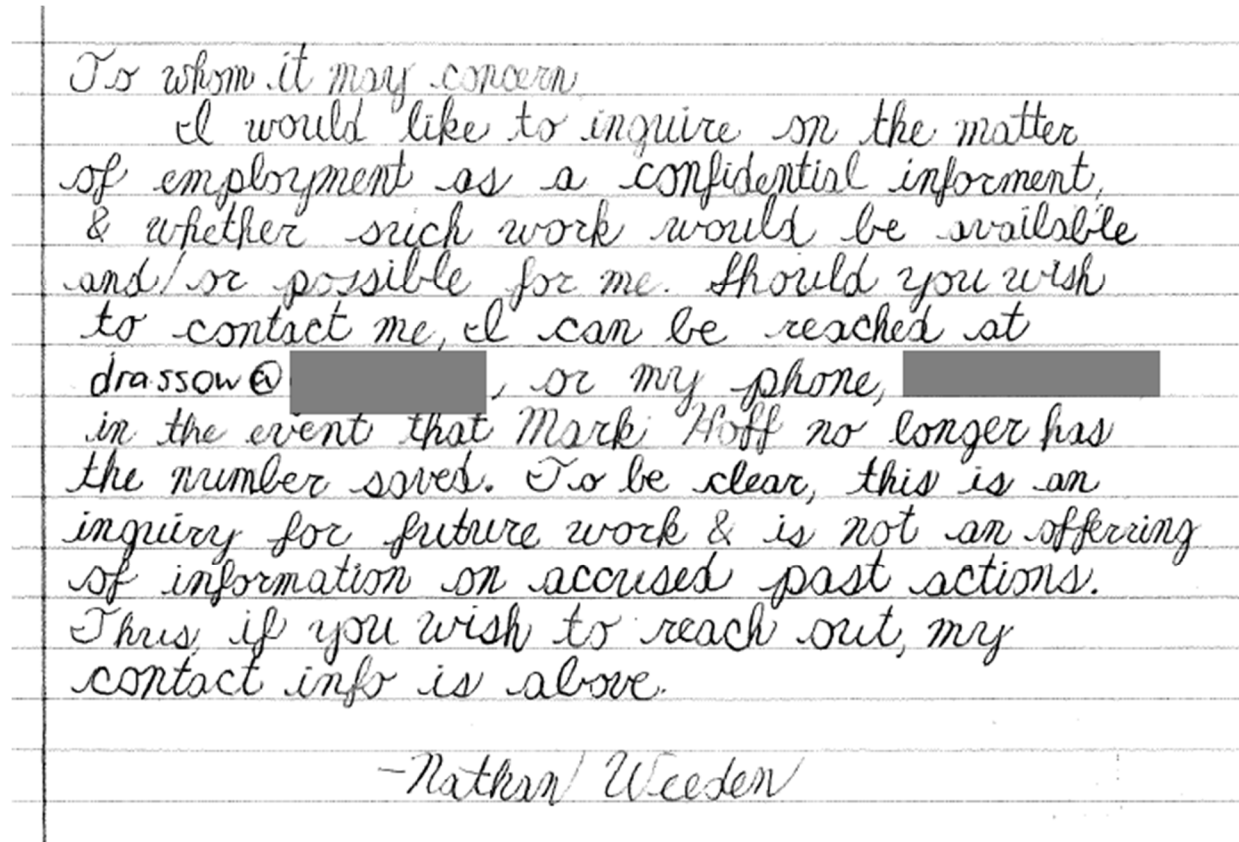 To whom it may concern
I would like to inquire on the matter
of employment as a confidential informent,
& whether such work would be available
and/or possible for me. Should you wish
to contact me, I can be reached at
drassow@ , or my phone,
in the event that Mark Hoff no longer has
the number saved. To be clear, this is an
inquiry for future work & is not an offering
of information on accused past actions.
Thus, if you wish to reach out, my
contact info is above.
-Nathan Weeden